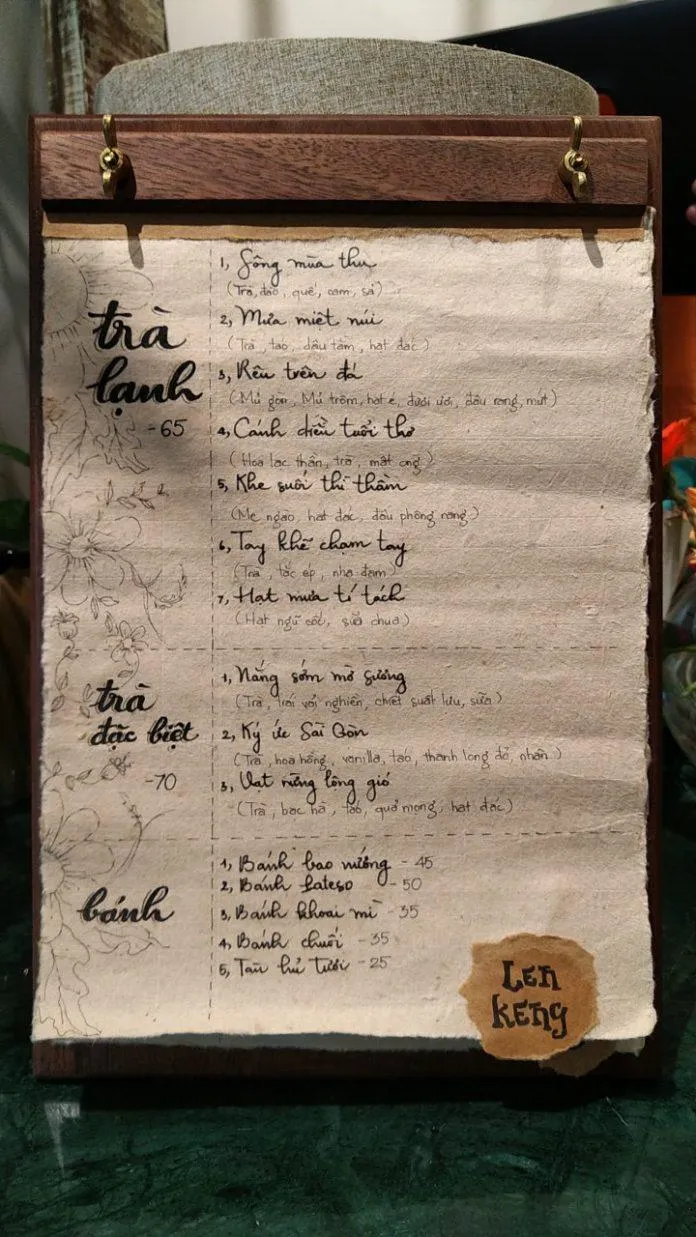 trà
lạnh
-65
1, Sông mùa thu
(Trà, đào, quế, cam, sả)
2, Mưa miệt núi
(Trà, táo, dâu tằm, hạt đác)
3, Rêu trên đá
(Mủ gòn, Mủ trôm, hạt é, đười ươi, đậu rang, mứt)
4, Cánh diều tuổi thơ
(Hoa lạc thần, trà, mật ong)
5, Khe suối thì thầm
(Me ngào, hạt đác, đậu phộng rang)
6, Tay khẽ chạm tay
(Trà, tắc ép, nha đam)
7, Hạt mưa tí tách
(Hạt ngũ cốc, sữa chua)
trà
đặc biệt
-70
1, Nắng sớm mờ sương
(Trà, trái vải nghiền, chiết suất lựu, sữa)
2, Ký ức Sài Gòn
(Trà, hoa hồng, vanilla, táo, thanh long đỏ, nhãn)
3, Vạt rừng lộng gió
(Trà, bạc hà, táo, quả mọng, hạt đác)
bánh
1, Bánh bao nướng - 45
2, Bánh pateso - 50
3, Bánh khoai mì - 35
4, Bánh chuối - 35
5, Tàu hủ tươi - 25
Len
keng